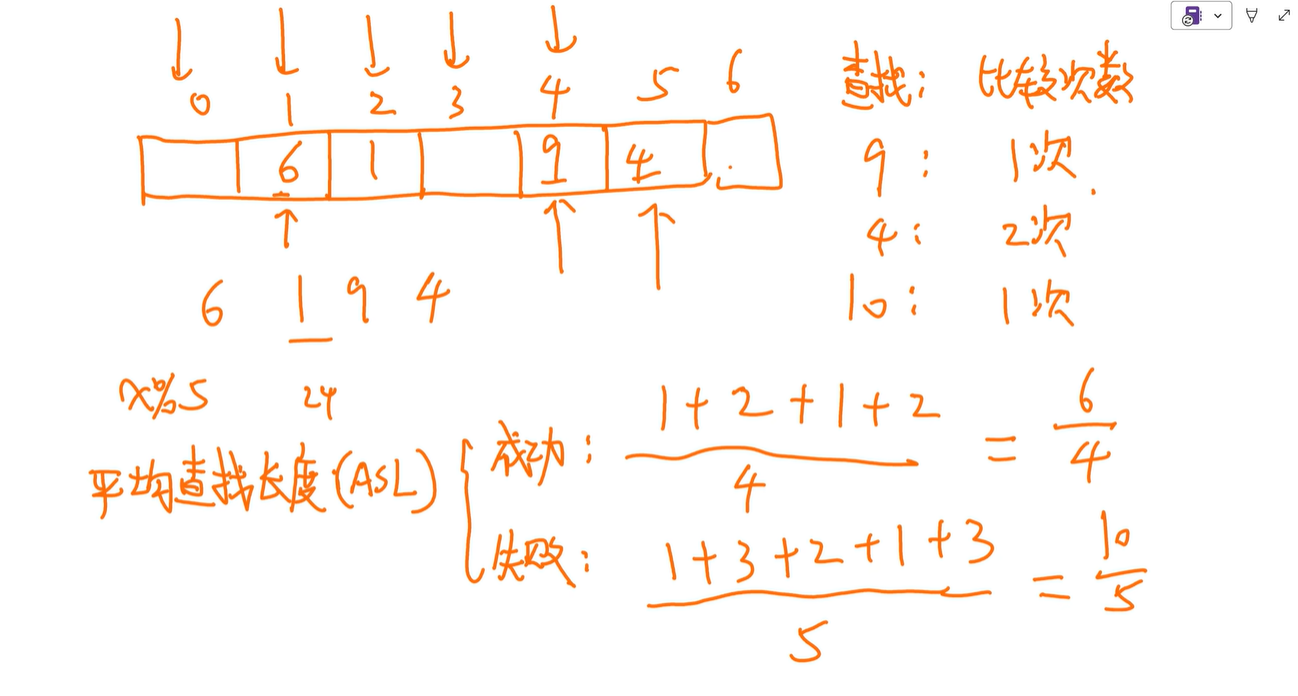 0 1 2 3 4 5 6
6 1 9 4 .
6 1 9 4
x%5 24
查找: 比较次数
9: 1次
4: 2次
10: 1次
平均查找长度(ASL)
成功: 1+2+1+2 / 4 = 6 / 4
失败: 1+3+2+1+3 / 5 = 10 / 5